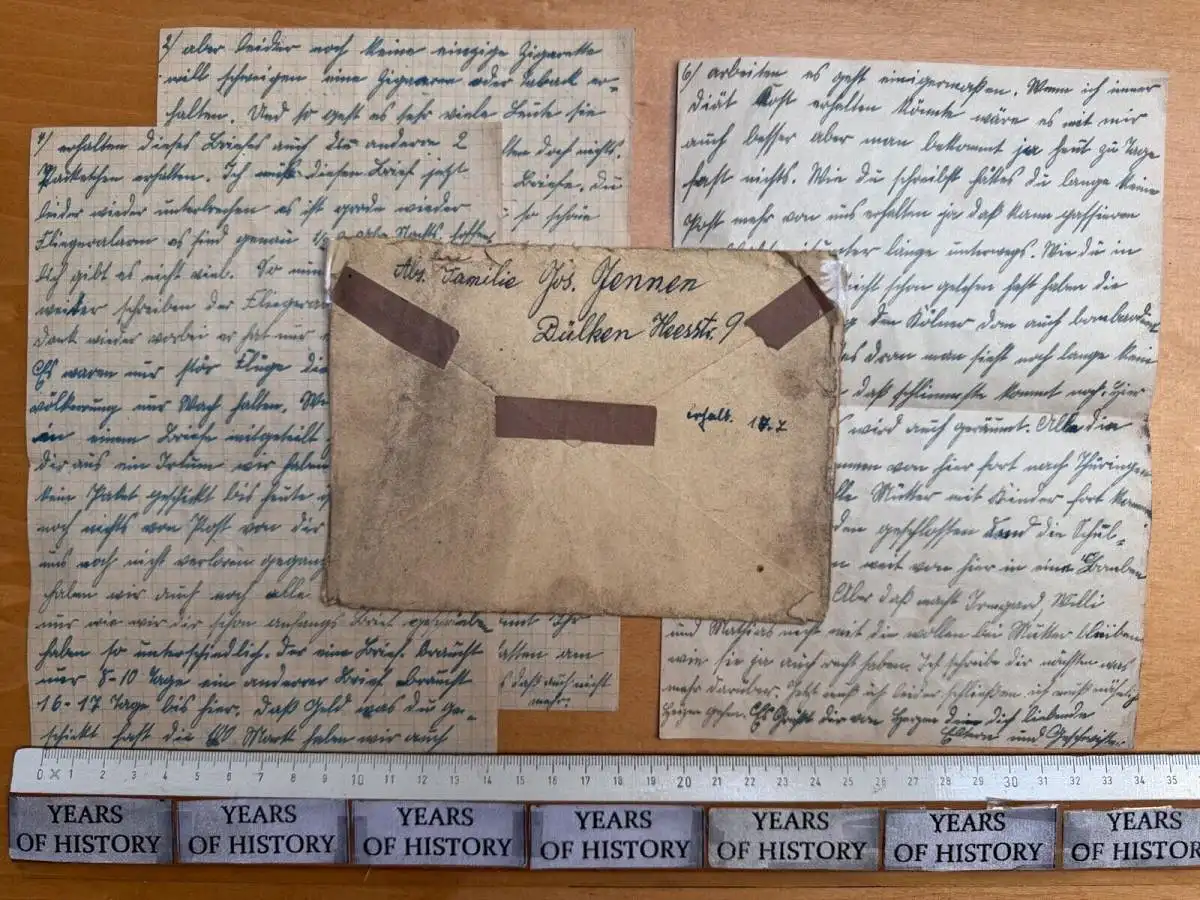 2/ aber leider noch keine einzige Zigarette
will schweigen eine Zigarren oder Tabak er-
halten. Und so geht es sehr viele Leute sie
doch nichts.
Briefe. Du
so schöne
am
daß auch nicht
mehr.
4/ erhalten dieses Briefes auch die anderen 2
Päckchen erhalten. Ich muß diesen Brief jetzt
leider wieder unterbrechen es ist grade wieder
Fliegeralarm es sind genau Uhr Nachts. hoffent
lich gibt es nicht viel. So nun
weiter schreiben der Fliegeral
Dank wieder vorbei er hat nur
Es waren nur stör Flüge die
völkerung nur Wach halten. Wi
in einem Briefe mitgeteilt
dir aus ein Irtum wir haben
kein Paket geschickt bis heute
noch nichts von Post von dir
uns noch nicht verloren gegang
haben wir auch noch alle
nur wie wir dir schon anfangs Brief geschrieben
haben so unterschiedlich. Der eine Brief braucht
nur 8-10 Tage ein anderer Brief braucht
16-17 Tage bis hier. Daß Geld was du ge-
schickt hast die Mark haben wir auch
Abs. Familie Jos. Jennen
Dülken Heesstr. 9
erhalt. 17.7
6/ arbeiten es geht einigermaßen. Wenn ich immer
Diät Kost erhalten könnte wäre es mit mir
auch besser aber man bekommt ja heut zu Tage
fast nichts. Wie du schreibst hättes du lange keine
Post mehr von uns erhalten ja daß kann passieren
länge unterwegs. Wie du in
nicht schon gelesen hast haben die
den Kölner Dom auch bombardiert
dran man sieht noch lange kein
daß schlimmste kommt noch. Hier
wird auch geräumt. Alle die
von hier fort nach Thüringen
Mütter mit Kinder fort kom
geschlossen und die Schul-
weit von hier in eine
Aber daß macht Irmgard, Willi
und Mathias nicht mit die wollen bei Mutter bleiben
wie sie ja auch recht haben. Ich schreibe dir nächsten was
mehr darüber. Jetzt muß ich leider schließen ich muß
gehen. Es Grüßt dir von Herzen deine dich liebende
Eltern und Geschwister
0 1 2 3 4 5 6 7 8 9 10 11 12 13 14 15 16 17 18 19 20 21 22 23 24 25 26 27 28 29 30 31 32 33 34 35
YEARS OF HISTORY YEARS OF HISTORY YEARS OF HISTORY YEARS OF HISTORY YEARS OF HISTORY YEARS OF HISTORY YEARS OF HISTORY